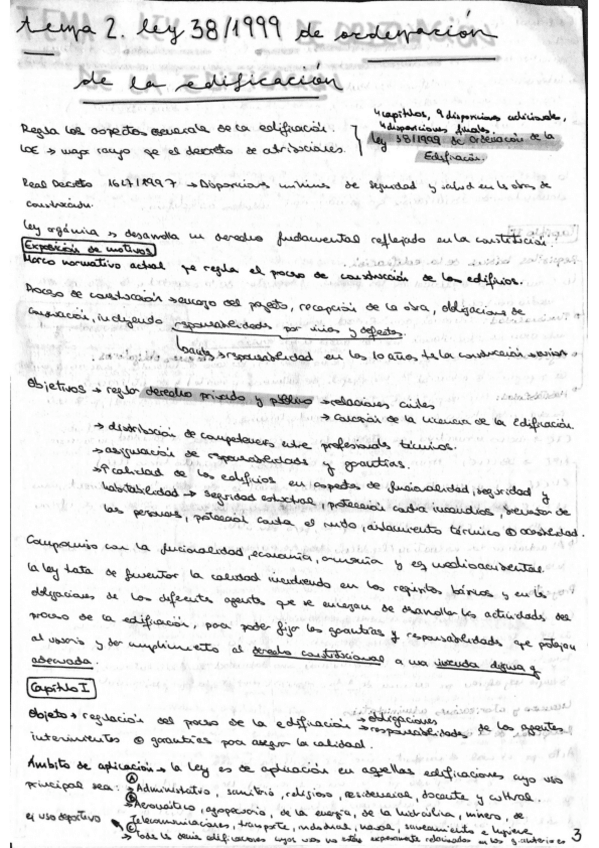 tema 2. ley 38/1999 de ordenación
de la edificación
4 capítulos, 9 disposiciones adicionales,
4 disposiciones finales.
Regla los aspectos generales de la edificación.
ley 38/1999 de Ordenación de la
LOE → mayor rango que el decreto de atribuciones.
Edificación.
Real Decreto 1627/1997 → Disposiciones mínimas de seguridad y salud en la obra de
construcción.
ley orgánica → desarrolla un derecho fundamental reflejado en la constitución.
Exposición de motivos
Marco normativo actual que regula el proceso de construcción de los edificios.
Proceso de construcción → encargo del proyecto, recepción de la obra, obligaciones de
conservación, incluyendo responsabilidades por vicios y defectos
hasta → responsabilidad en los 10 años de la construcción
Objetivos → reglar derecho privado y público → relaciones civiles
→ concesión de la licencia de la Edificación.
→ distribución de competencias entre profesionales técnicos.
→ asignación de responsabilidades y garantías.
→ calidad de los edificios en aspectos de funcionalidad, seguridad y
habitabilidad → seguridad estructural, protección contra incendios, de
las personas, protección contra el ruido, aislamiento térmico accesibilidad.
Compromiso con la funcionalidad, economía, armonía y eq. medioambiental.
la ley trata de fomentar la calidad incidiendo en los requisitos básicos y en las
obligaciones de los diferentes agentes que se encargan de desarrollar las actividades del
proceso de la edificación, para poder fijar las garantías y responsabilidades que protejan
al usuario y dar cumplimiento al derecho constitucional a una vivienda digna y
adecuada.
Capítulo I
Objeto → regulación del proceso de la edificación → obligaciones
→ responsabilidades de los agentes
intervinientes garantías para asegurar la calidad.
Ámbito de aplicación → la ley es de aplicación en aquellas edificaciones cuyo uso
principal sea: A → Administrativo, sanitario, religioso, residencial, docente y cultural.
B → Aeronáutico, agropecuario, de la energía, de la hidráulica, minero, de
ej uso deportivo Telecomunicaciones, transporte, industrial, naval, saneamiento e higiene
→ Todas las demás edificaciones cuyos usos no estén expresamente relacionados en los g. anteriores
3